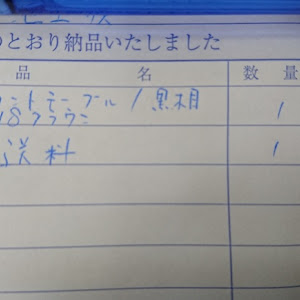 のとおり納品いたしました
品 名 数 量
ントテーブル / 黒柏 1
18ブラウン
送料 1